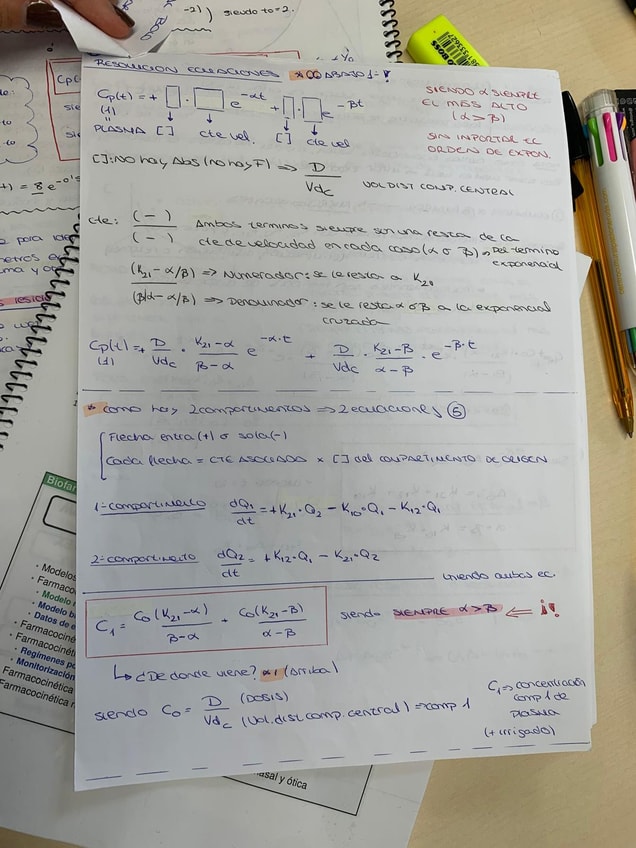 -2) , siendo to=2.
RESOLUCION ECUACIONES * ABAJO 1-
Cp(t) = + □ · □ e^-αt + □ · □ e^-βt
(1)
PLASMA [] cte vel. [] cte vel
SIENDO α SIEMPRE
EL MÁS ALTO
(α > β)
SIN IMPORTAR EL
ORDEN DE EXPON.
[]: NO hay Abs (no hay F) ⇒ D / Vdc VOL DIST COMP. CENTRAL
cte: (-) / (-) Ambos terminos siempre son una resta de la
cte de velocidad en cada caso (α o β) ⇒ Del termino
exponencial
(K21 - α/β) ⇒ Numerador: se le resta a K21
(β/α - α/β) ⇒ Denominador: se le resta α o β a la exponencial
cruzada
Cp(t) = + D/Vdc · K21-α / β-α e^-α·t + D/Vdc · K21-β / α-β · e^-β·t
(1)
* como hay 2 compartimentos ⇒ 2 ecuaciones (5)
Flecha entra (+) o sale (-)
Cada flecha = CTE ASOCIADA × [] del COMPARTIMENTO DE ORIGEN
1- compartimento dQ1/dt = +K21·Q2 - K10·Q1 - K12·Q1
2- compartimento dQ2/dt = +K12·Q1 - K21·Q2
uniendo ambas ec.
C1 = C0(K21-α) / β-α + C0(K21-β) / α-β siendo SIEMPRE α>β ⇐ ¡!
↳ ¿De donde viene? *1 (Arriba)
siendo C0 = D / Vdc (DOSIS) (Vol. dist comp. central) ⇒ comp 1
C1 ⇒ concentración
comp 1 de
plasma
(+ irrigado)
Biofar
• Modelos
• Farmacoc
• Modelo
• Modelo b
• Datos de
• Farmacociné
• Farmacociné
• Regímenes po
• Monitorización
• Farmacocinética
Farmacocinética
asal y ótica
BOSS